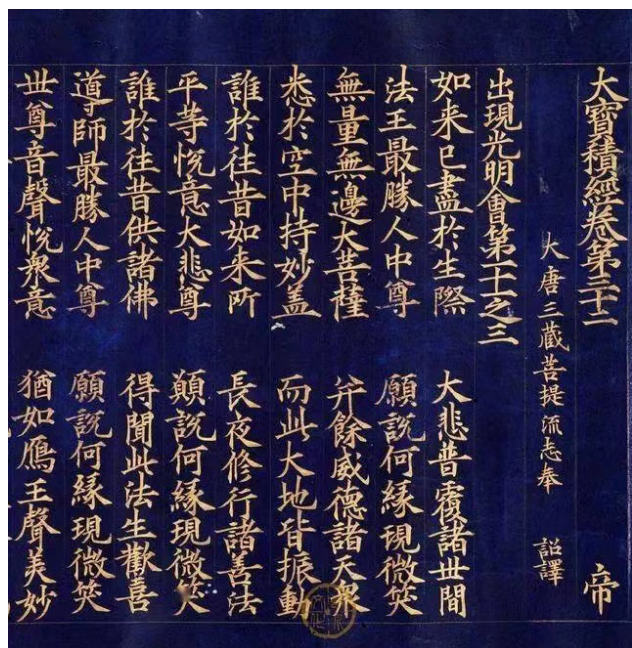 大寶積經卷第三十二 帝
大唐三藏菩提流志奉 詔譯
出現光明會第十一之三
如来已盡於生際 大悲普覆諸世間
法王最勝人中尊 願說何緣現微笑
無量無邊大菩薩 并餘威德諸天衆
悉於空中持妙盖 而此大地皆振動
誰於往昔如来所 長夜修行諸善法
平等悅意大悲尊 願說何緣現微笑
誰於往昔供諸佛 得聞此法生歡喜
導師最勝人中尊 願說何緣現微笑
世尊音聲悅衆意 猶如鴈王聲美妙